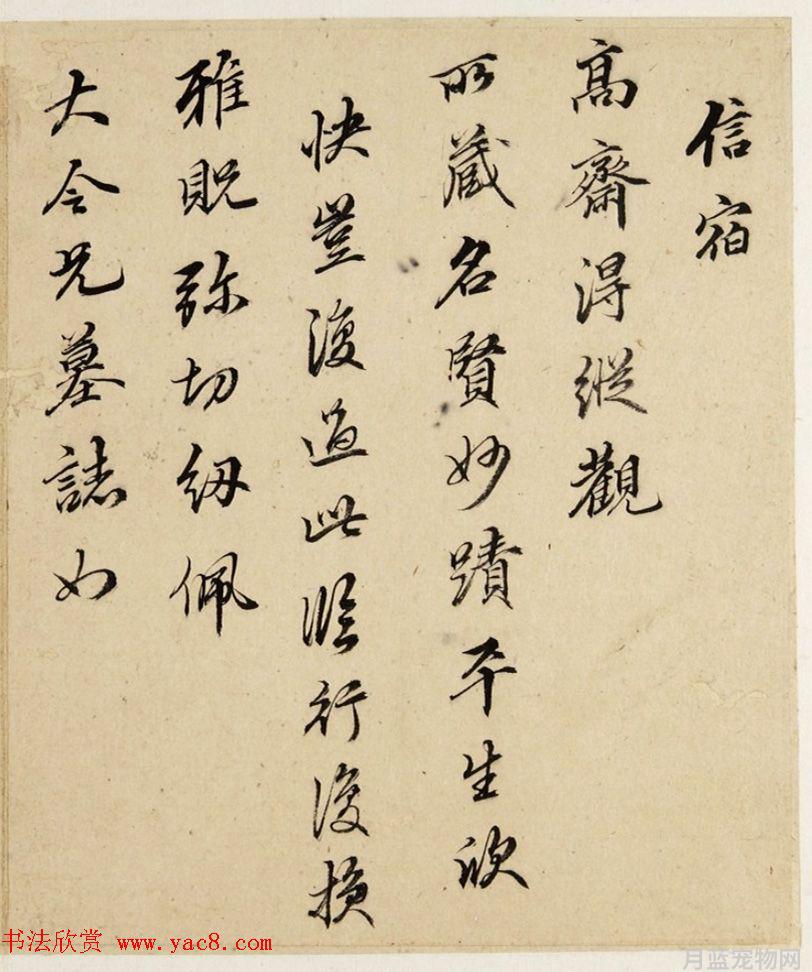 信宿
高齋得縱觀
所藏名賢妙蹟平生欣
快豈復過此臨行復損
雅貺弥切紉佩
大令兄墓誌如
书法欣赏 www.yac8.com
月蓝宠物网